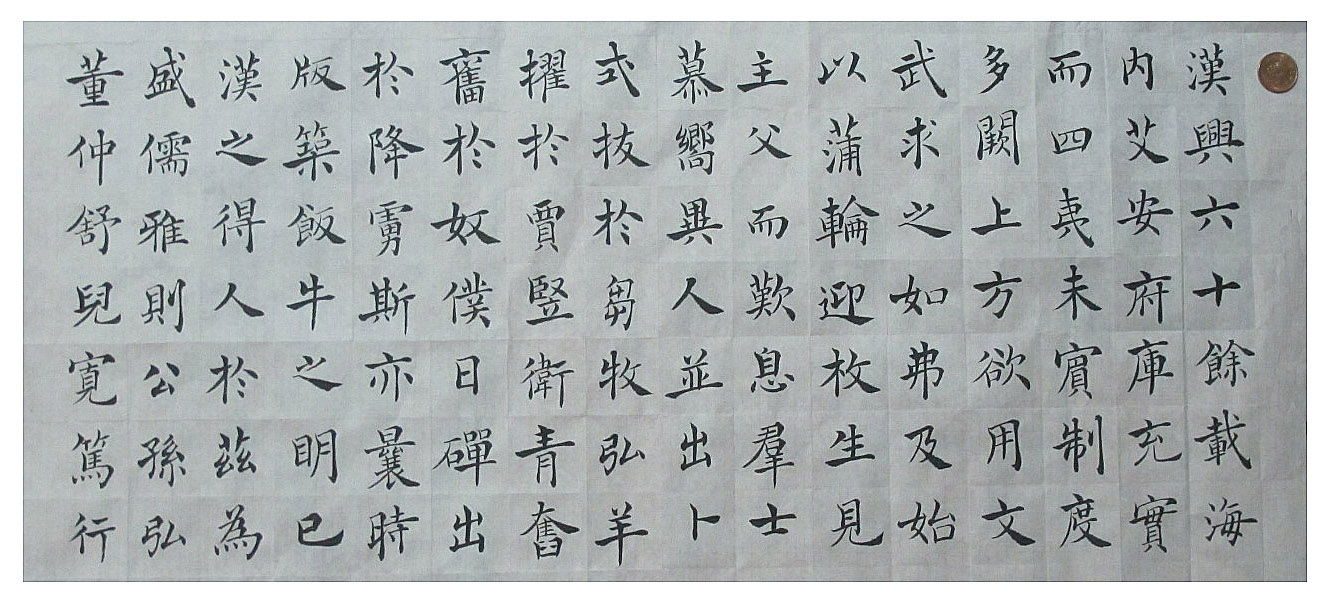 漢興六十餘載海
内艾安府庫充實
而四夷未賓制度
多闕上方欲用文
武求之如弗及始
以蒲輪迎枚生見
主父而歎息羣士
慕嚮異人並出卜
式拔於芻牧弘羊
擢於賈豎衛青奮
奮於奴僕日磾出
於降虜斯亦曩時
版築飯牛之明已
漢之得人於茲為
盛儒雅則公孫弘
董仲舒兒寬篤行